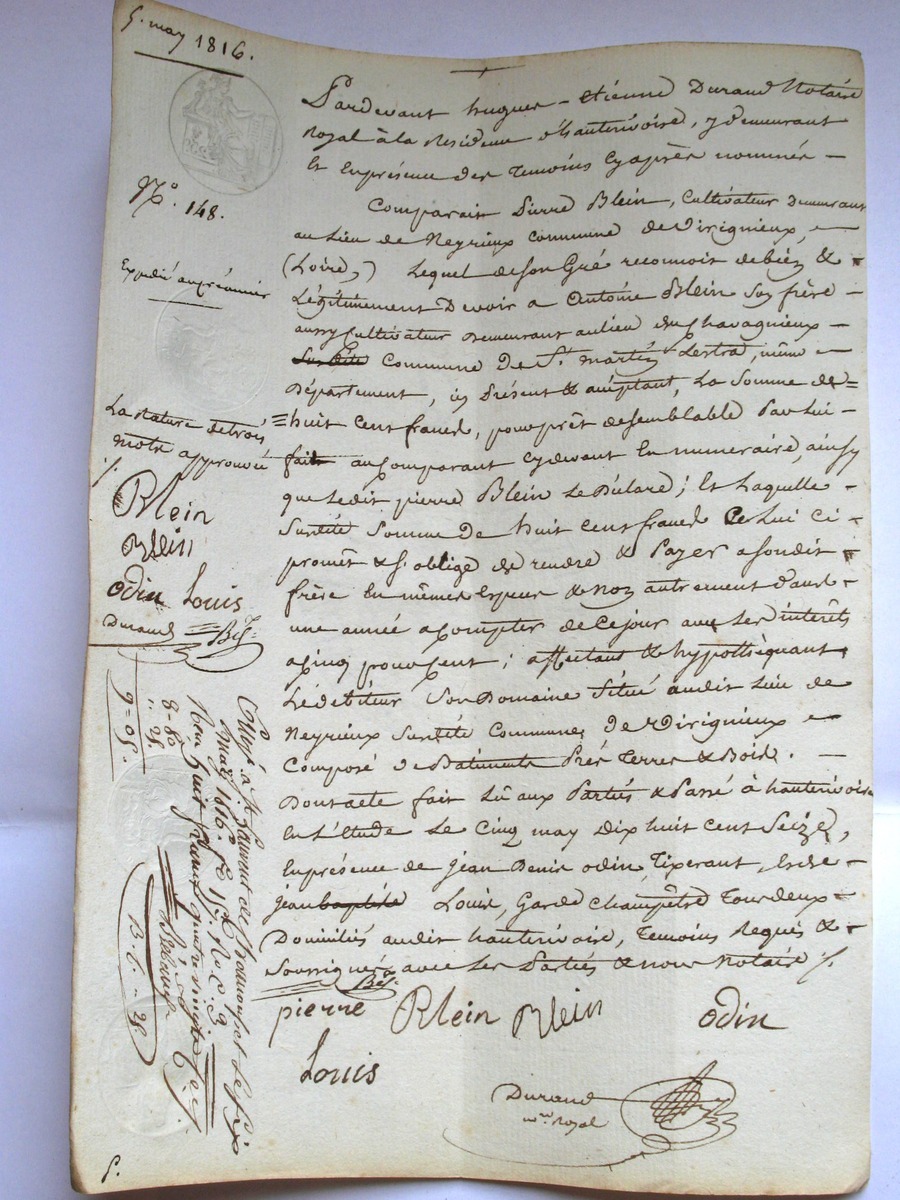 5. may 1816.
Pardevant hugues - Etienne Durand Notaire
Royal à la Residence d'hauterivoire, y demeurant
Et Enpresence des Temoins Cyaprès nommés —
N.o 148.
Comparait Pierre Blein, Cultivateur Demeurant
au Lieu de Neyrieux Commune de Virignieux, —
(Loire,) Lequel de son Gré reconnoit debien &
Expedié au créancier
Légitimement Devoir a Antoine Blein Son frère —
aussy Cultivateur Demeurant au lieu de Chavagnieux —
Susdite Commune De St. martin Lestrad, même —
Département, icy Présent & acceptant, La Somme de =
La rature de trois
mots approuvée
= huit Cent francs, pour prêt de semblable Par Lui —
fait au Comparant cydevant En numeraire, ainsy
que Ledit pierre Blein Le Déclare ; Et Laquelle —
Blein
Blein
odin Louis
Durand
Susdite Somme De huit Cent francs Celui ci —
promêt & s'oblige de rendre & Payer a Sondit
frère En mêmes Espèces & non autrement dans
une année a Compter de Ce jour avec Les interêts
a Cinq pour Cent ; affectant & hypothèquant
Le débiteur Son Domaine Situé audit Lieu de
Neyrieux Susdite Commune De Virignieux —
Composé de Batiments Prés Terres & Bois. —
Dont acte fait Lû aux Parties & Passé à hauterivoire
En L'Etude Le Cinq may Dix huit Cent Seize,
Enpresence de jean Denis odin, Tixerant, Et de —
jean baptiste Louis, Garde Champêtre Tous deux —
Domiciliés audit hauterivoire, Temoins Requis & —
Soussignés avec Les Parties & nous Notaire ./.
pierre Blein Blein odin
Louis
Durand
nre. Royal
8-80
.. 25.
9=05.
may 1816.
Reçu huit francs quatre vingts
B. 6. - 25.